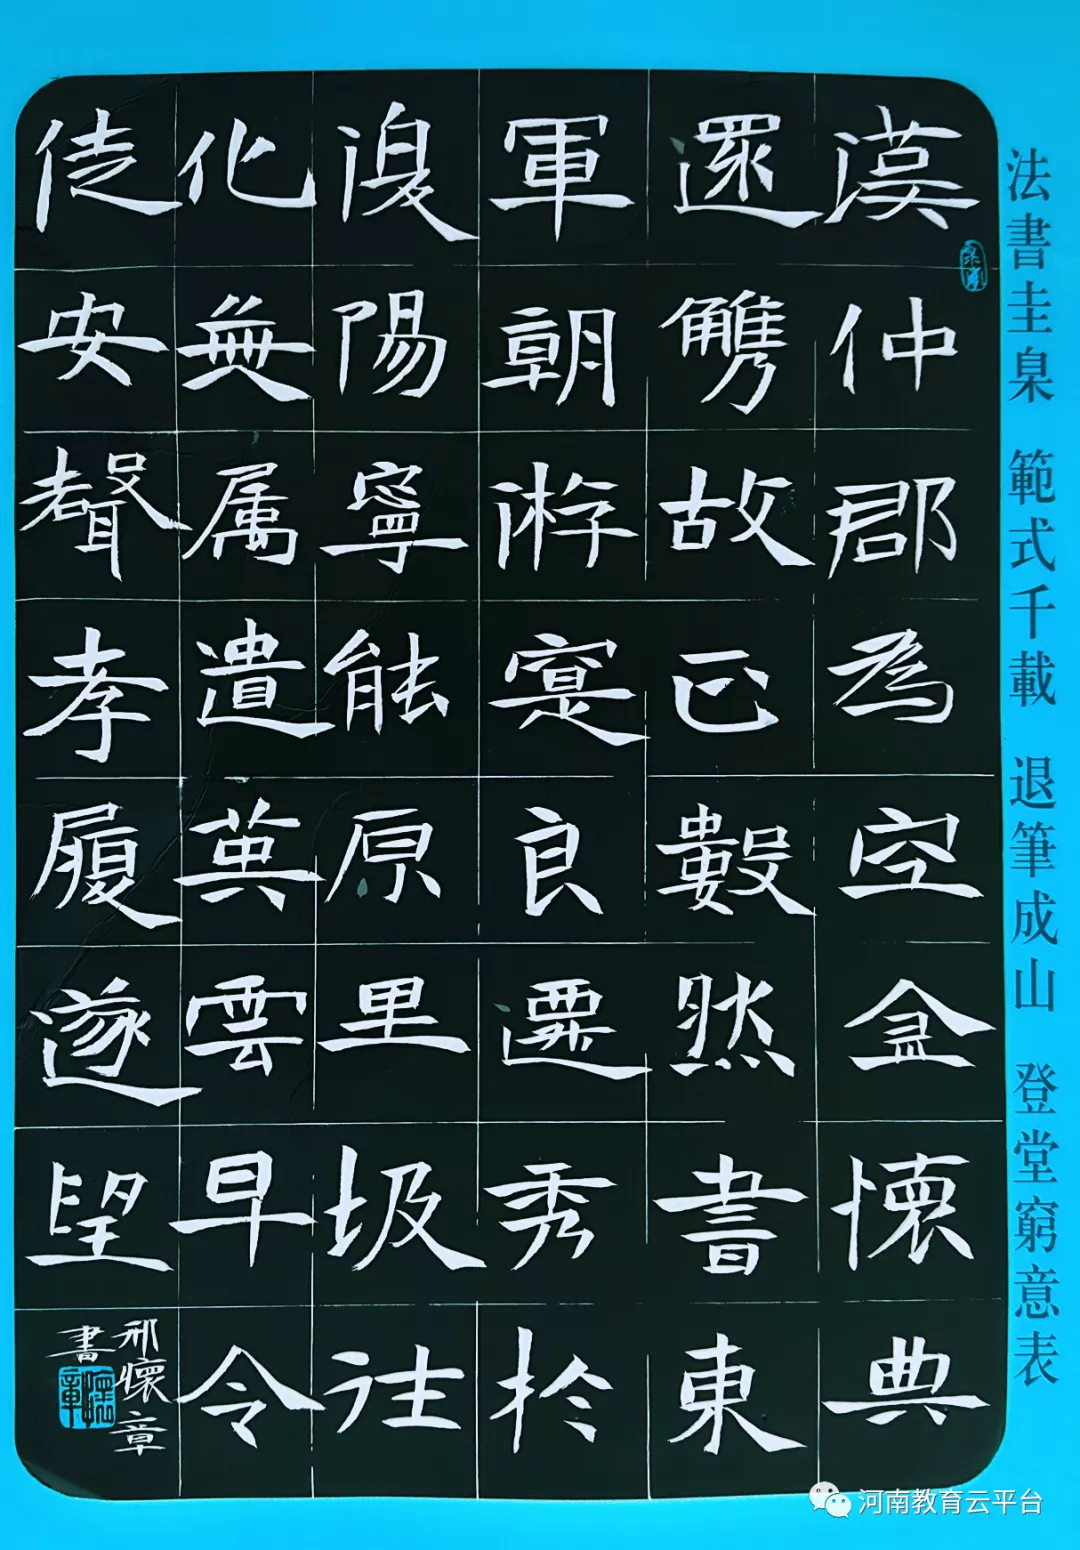 法書圭臬 範式千載 退筆成山 登堂窮意表
漢仲郡為空盒懷典
還故正數然書東
軍朝游寔良遷秀於
復陽寧能原里圾往
化無属遺英雲早令
徒安聲孝履遂望
邢懷章
書
河南教育云平台